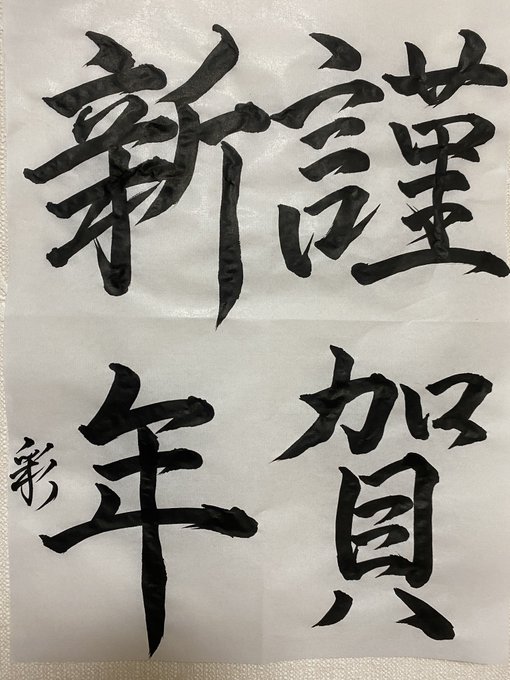 謹賀
新年
彩